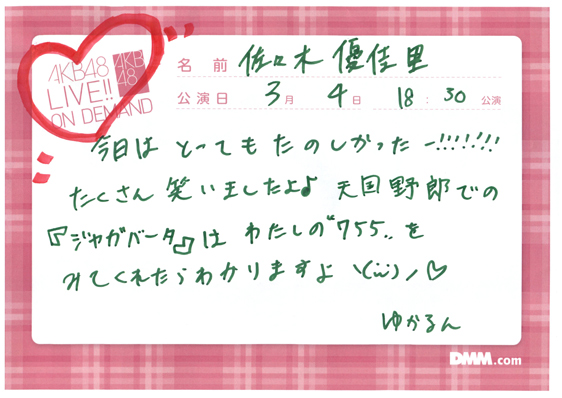 AKB48
LIVE!!
ON DEMAND
AKB
48
名 前 佐々木 優佳里
公演日 3月 4日 18:30公演
今日は とってもたのしかったー!!!!!!!
たくさん笑いましたよ♪ 天国野郎での
『ジャガバータ』は わたしの“755„を
みてくれたらわかりますよ ヽ(ü)ノ♡
ゆかるん
DMM.com